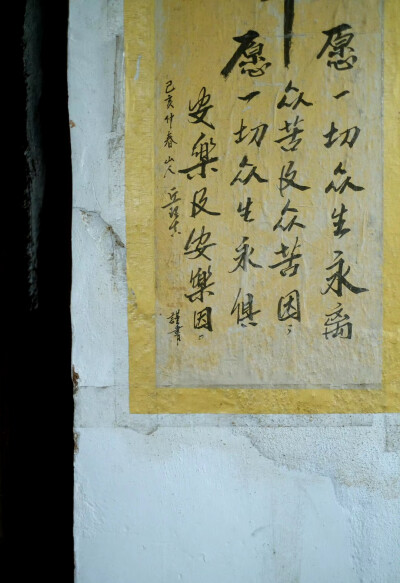 愿一切众生永离
众苦及众苦因；
愿一切众生永俱
安樂及安樂因。
己亥仲春 謹書